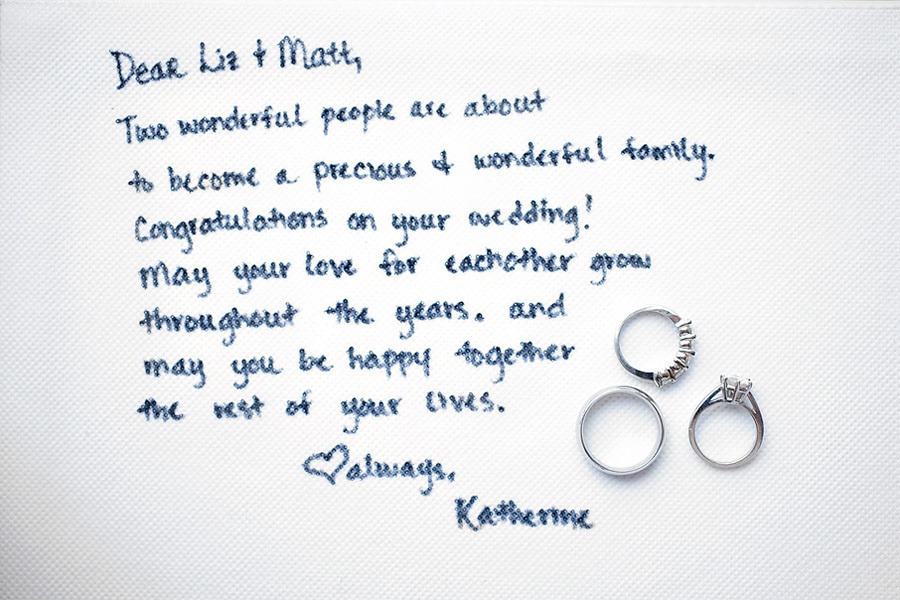 Dear Liz & Matt,
Two wonderful people are about
to become a precious & wonderful family.
Congratulations on your wedding!
May your love for eachother grow
throughout the years. and
may you be happy together
the rest of your lives.
♡always,
Katherine